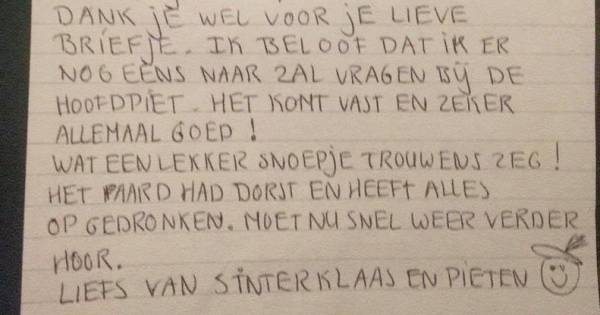 DANK JE WEL VOOR JE LIEVE
BRIEFJE. IK BELOOF DAT IK ER
NOG EENS NAAR ZAL VRAGEN BIJ DE
HOOFDPIET. HET KONT VAST EN ZEKER
ALLEMAAL GOED!
WAT EEN LEKKER SNOEPJE TROUWENS ZEG!
HET PAARD HAD DORST EN HEEFT ALLES
OP GEDRONKEN. MOET NU SNEL WEER VERDER
HOOR.
LIEFS VAN SINTERKLAAS EN PIETEN